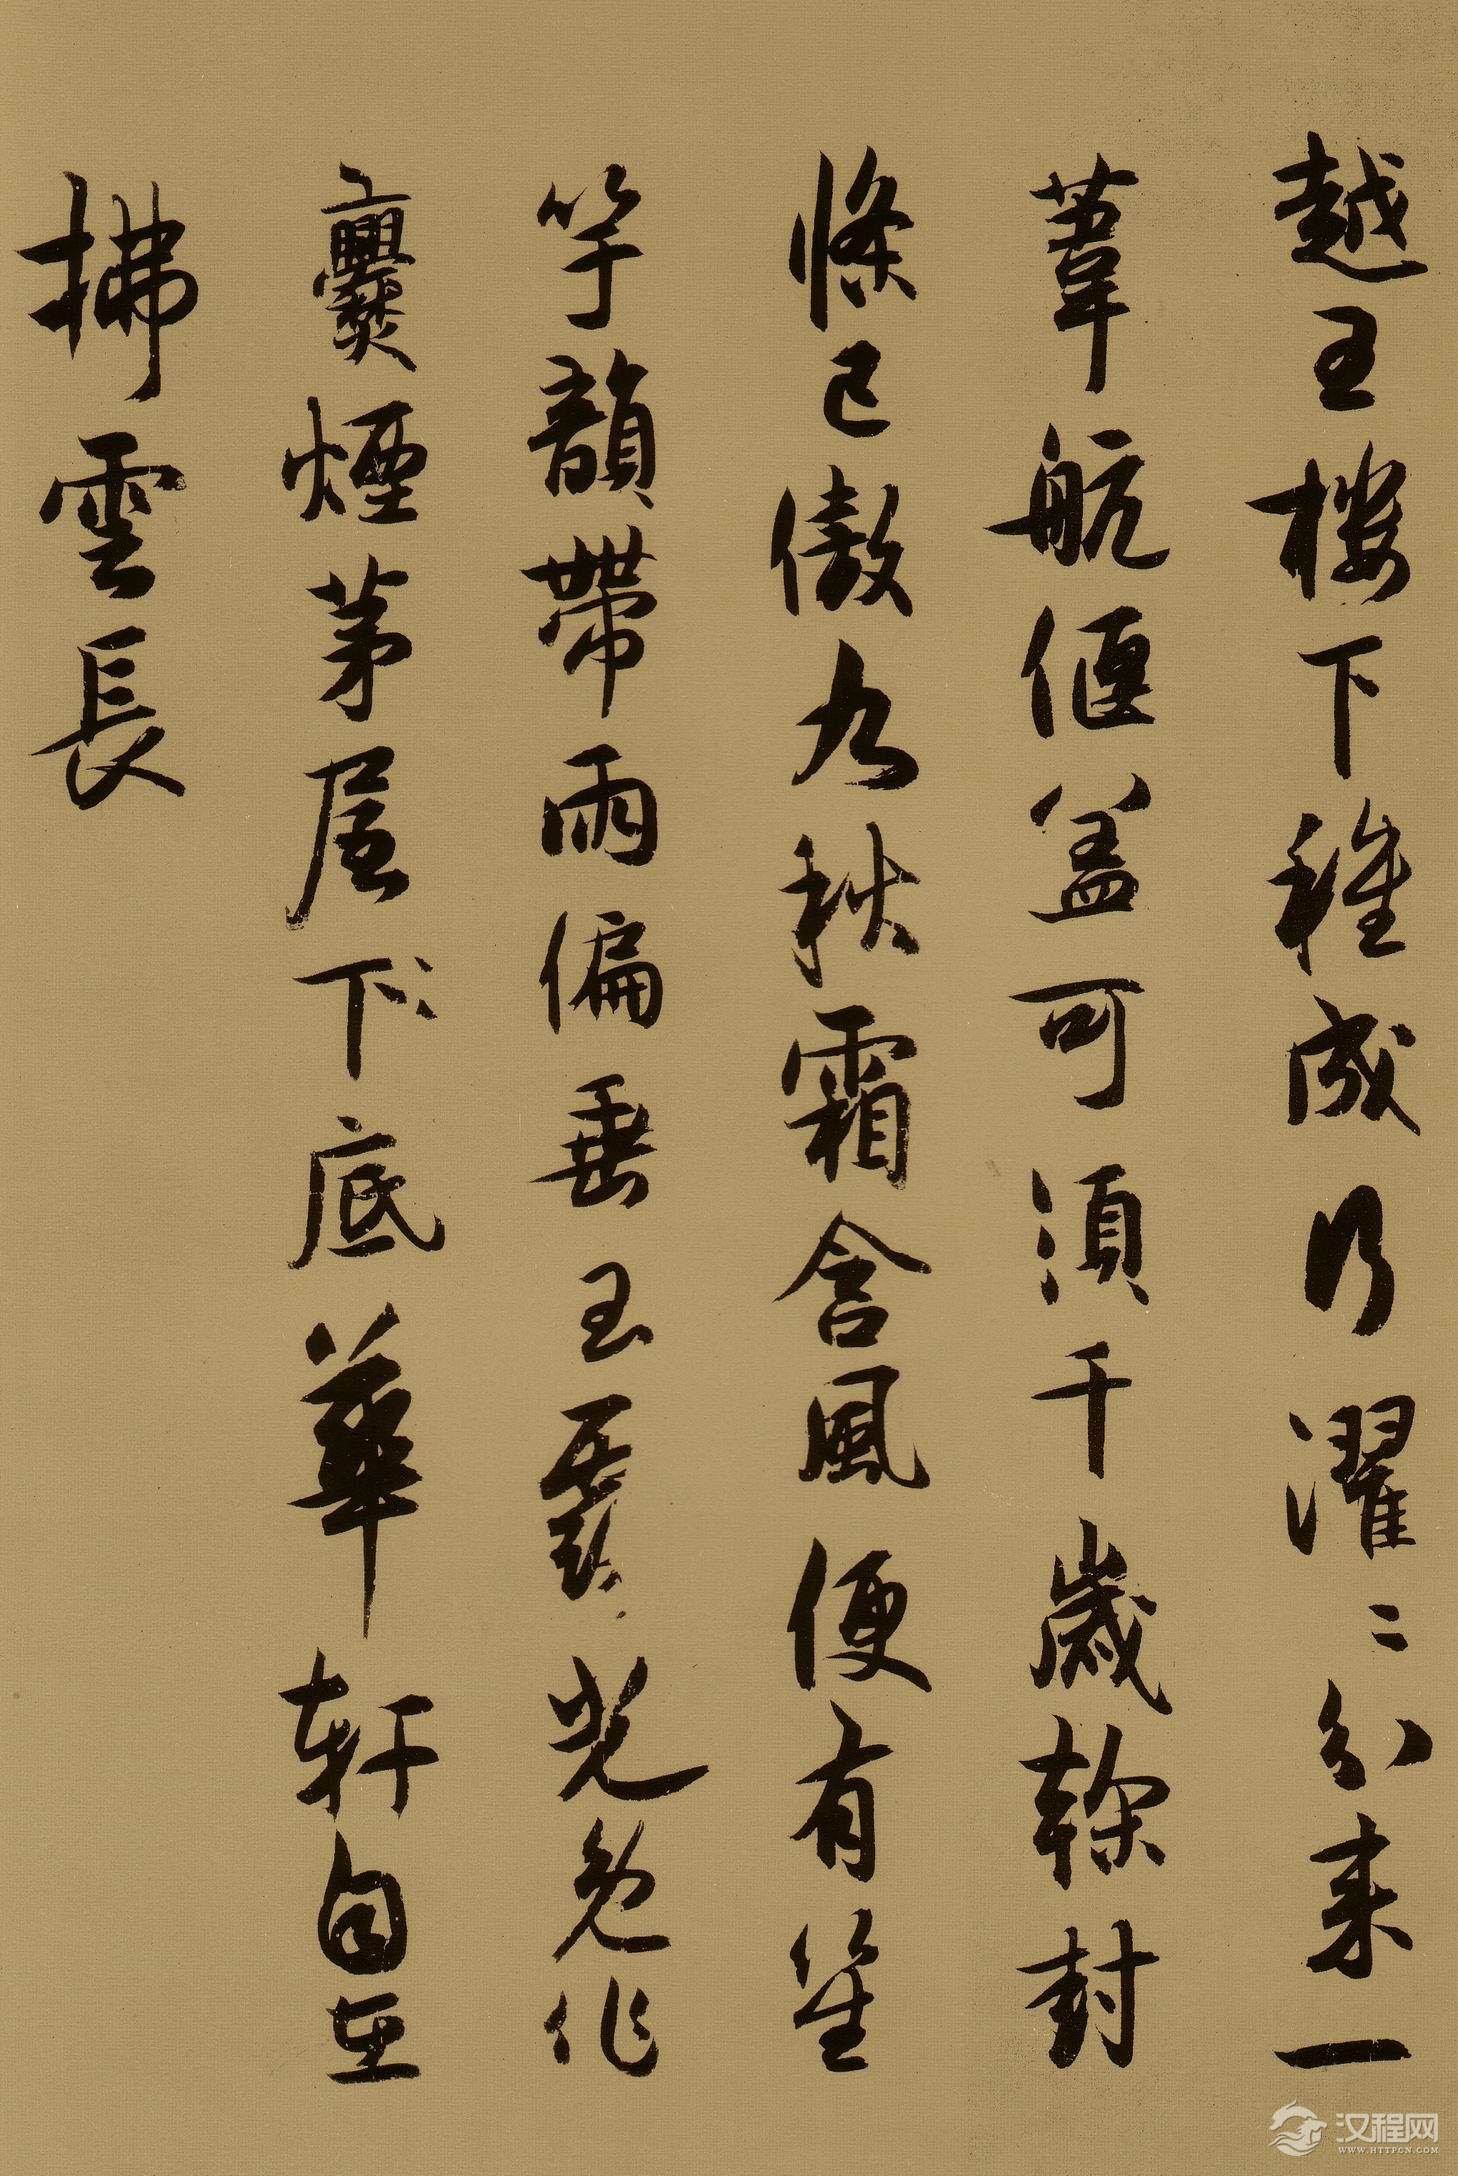 越王樓下稚成行濯〻分来一
葦航偃盖可須千歲榦封
條已傲九秋霜含風便有笙
竽韻帶雨偏垂玉露光免作
爨煙茅屋下底華軒自在
拂雲長
汉程网
WWW.HTTPCN.COM